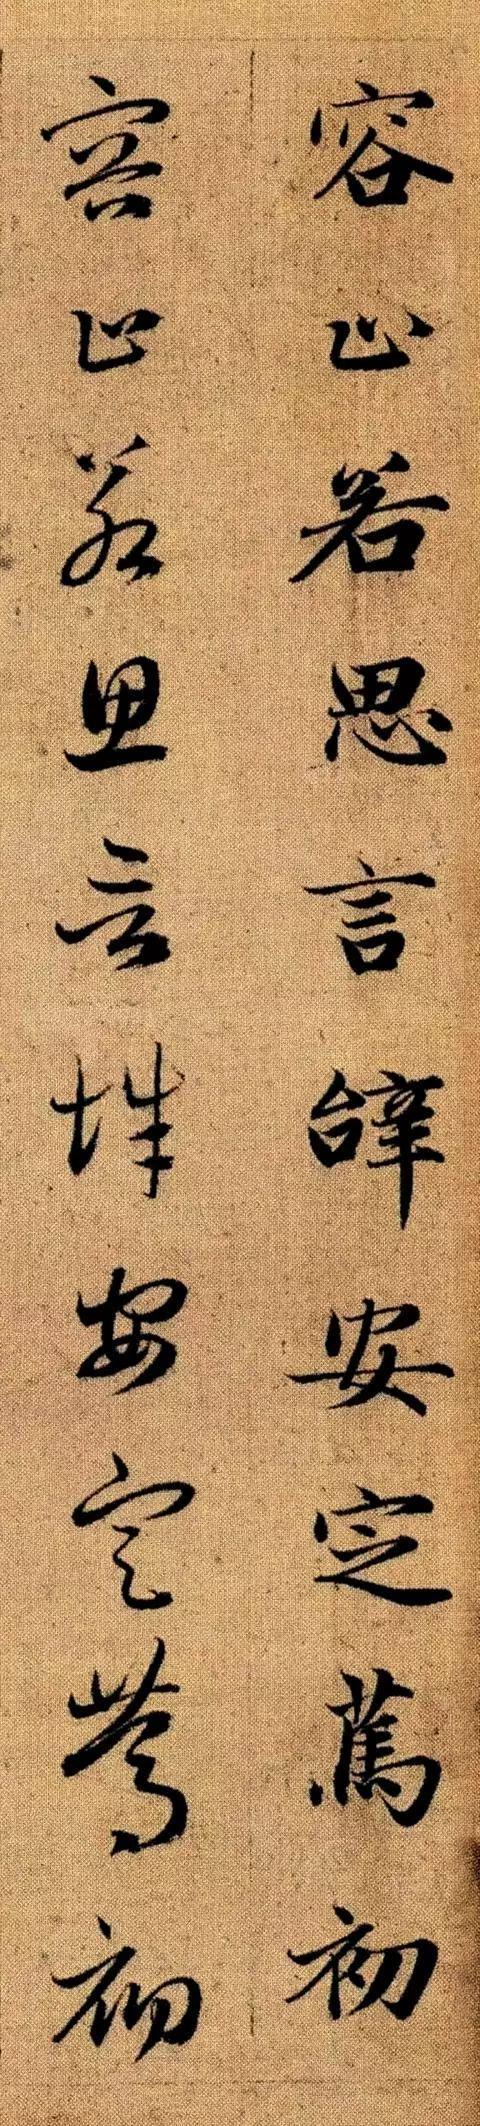 容止若思言辝安定篤初
容止若思言辝安定篤初